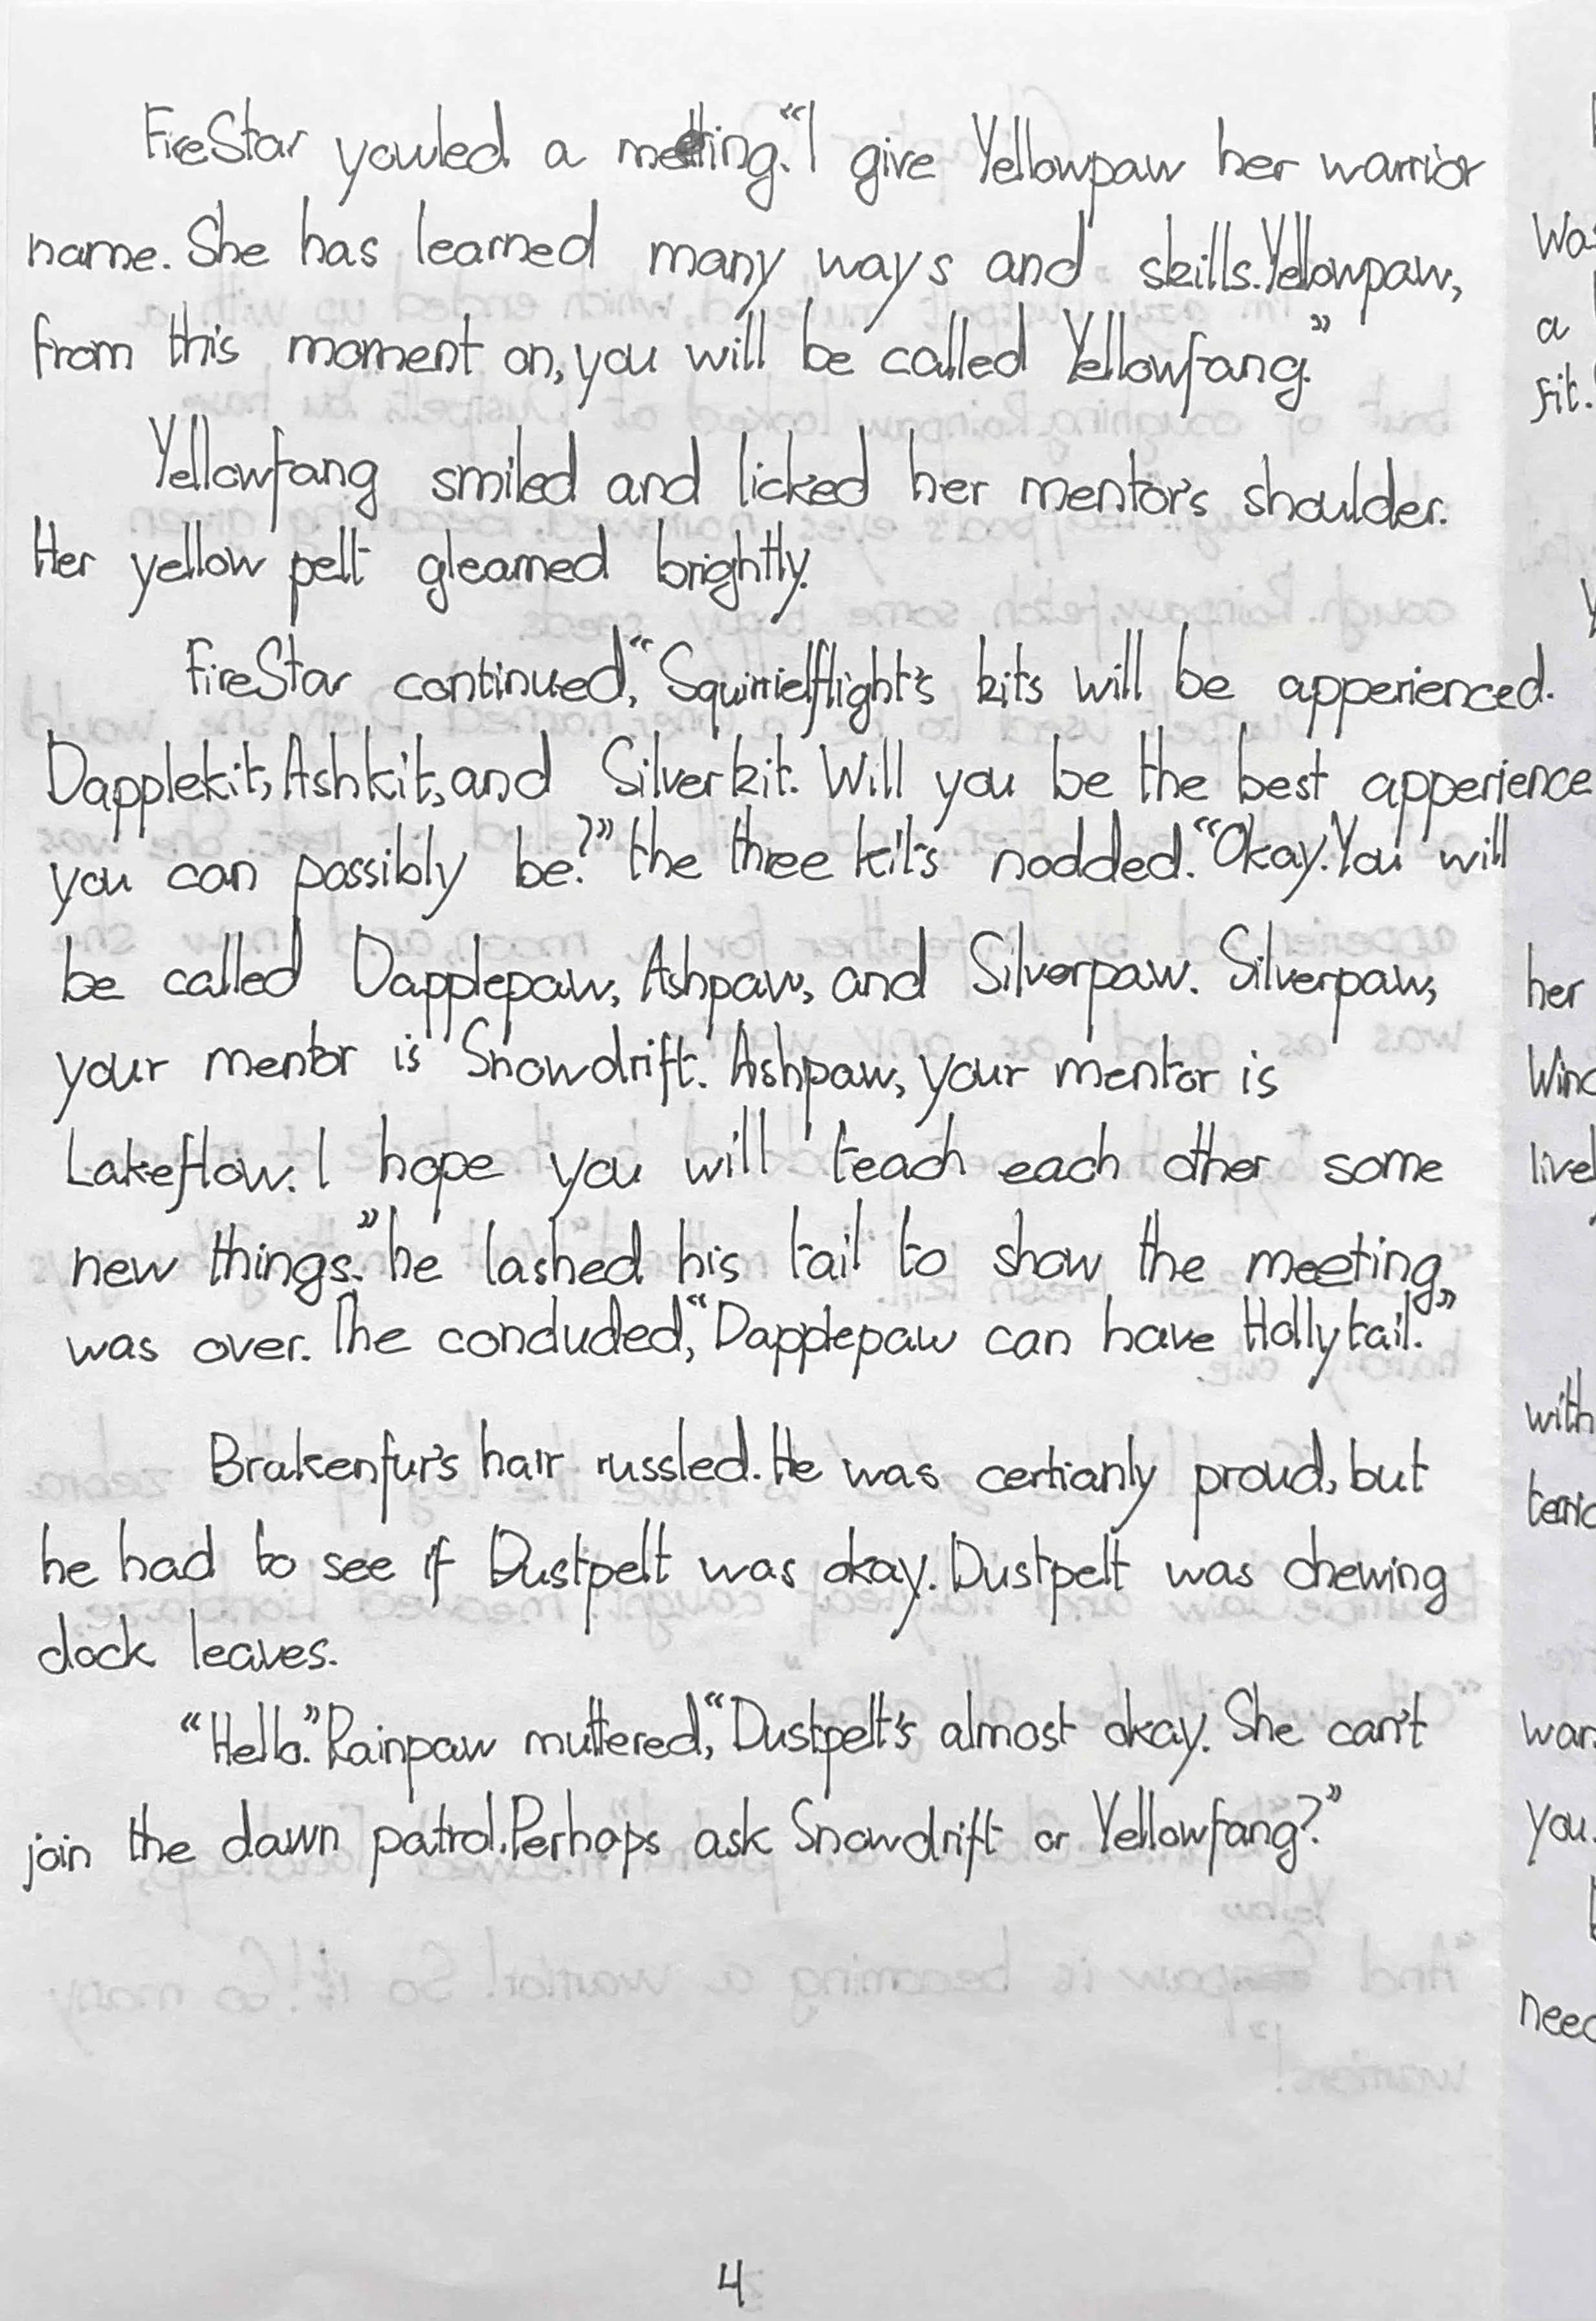 FireStar youled a meeting. "I give Yellowpaw her warrior
name. She has learned many ways and skills. Yellowpaw,
from this moment on, you will be called Yellowfang."
Yellowfang smiled and licked her mentor's shoulder.
Her yellow pelt gleamed brightly.
FireStar continued, "Squirrielflight's kits will be apperienced.
Dapplekit, Ashkit, and Silverkit. Will you be the best apperience
you can possibly be?" the three kits nodded. "Okay. You will
be called Dapplepaw, Ashpaw, and Silverpaw. Silverpaw,
your mentor is Snowdrift. Ashpaw, your mentor is
Lakeflow. I hope you will teach each other some
new things." he lashed his tail to show the meeting
was over. The concluded, "Dapplepaw can have Hollytail."
Brakenfur's hair russled. He was certianly proud, but
he had to see if Dustpelt was okay. Dustpelt was chewing
dock leaves.
"Hello." Rainpaw muttered, "Dustpelt's almost okay. She can't
join the dawn patrol. Perhaps ask Snowdrift or Yellowfang?"
4
a
fit.
her
live
with
you.